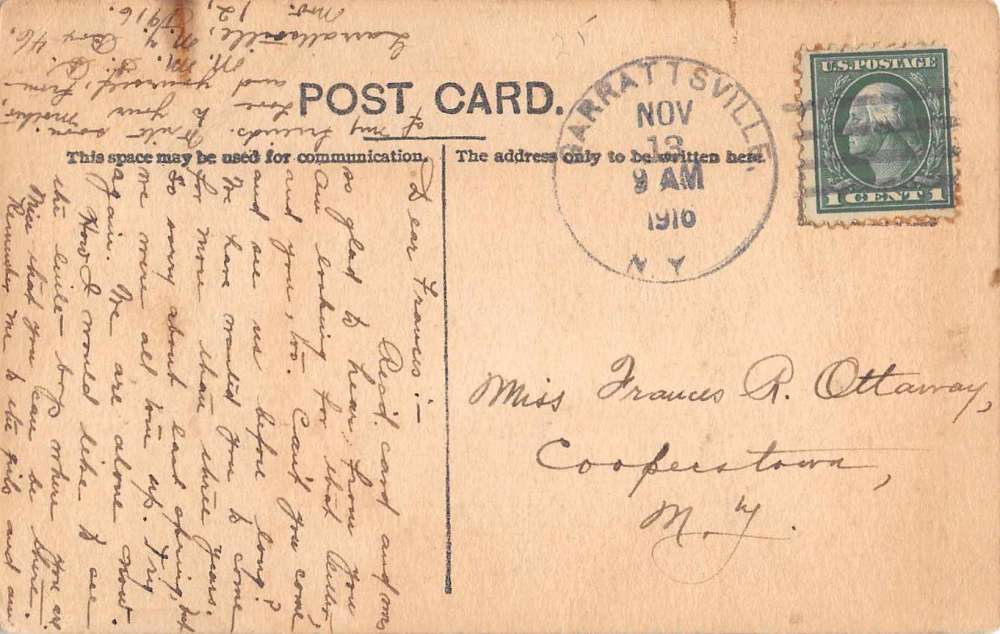 POST CARD.
This space may be used for communication.
The address only to be written here.
GARRATTSVILLE,
NOV
13
9 AM
1916
N Y
U.S. POSTAGE
1 CENT 1
Miss Frances R. Ottaway,
Cooperstown,
N.Y.
Dear Frances:-
Rec'd. card and was
so glad to hear from you
Am looking for that letter,
and you, too. Can't you come
and see us before long?
We have wanted you to come
for more than three years.
So sorry about last spring, but
we were all torn up. Try
again. We are alone now.
How I would like to see
the little boy where you are
Nice that you can be there.
Remember me to the girls and all
of my friends.
Love to your mother,
and yourself, from
Garrattsville, N.Y. Box 46,
Nov. 12, 1916.